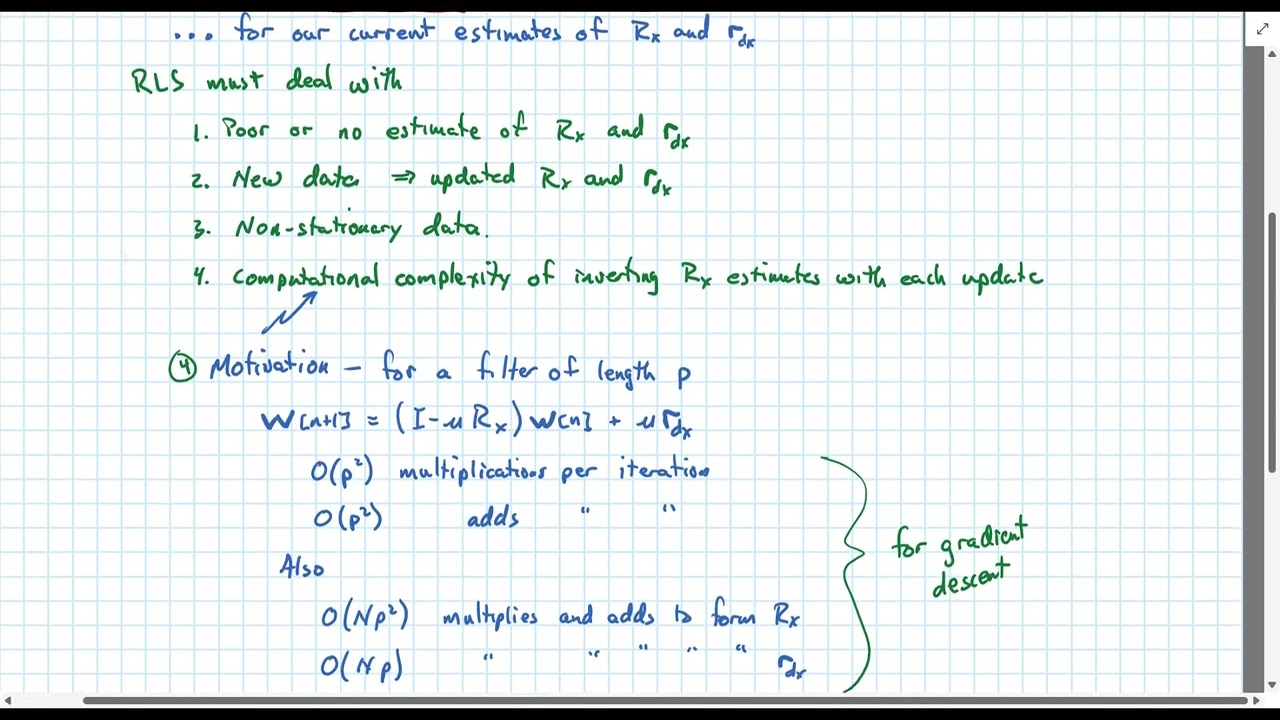 ... for our current estimates of Rx and rdx
RLS must deal with
1. Poor or no estimate of Rx and rdx
2. New data ⇒ updated Rx and rdx
3. Non-stationary data.
4. Computational complexity of inverting Rx estimates with each update
④ Motivation – for a filter of length p
W[n+1] = (I-μRx)W[n] + μrdx
O(p²) multiplications per iteration
O(p²) adds " "
Also
O(Np²) multiplies and adds to form Rx
O(Np) " " " " " rdx
for gradient
descent